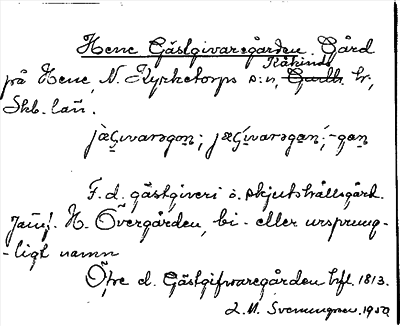 Hene Gästgivaregården. Gård
på Hene, N. Kyrketorps s:n, Kåkinds hr,
Skb. län.
jæçivaragɷn; jæçivaragan; -gan
F.d. gästgiveri o. skjutshållsgård.
Jämf. H. Övergården, bi- eller ursprung-
-ligt namn
Öfre d. Gästgifvaregården hfl. 1813.
L. M. Svenungsson. 1950